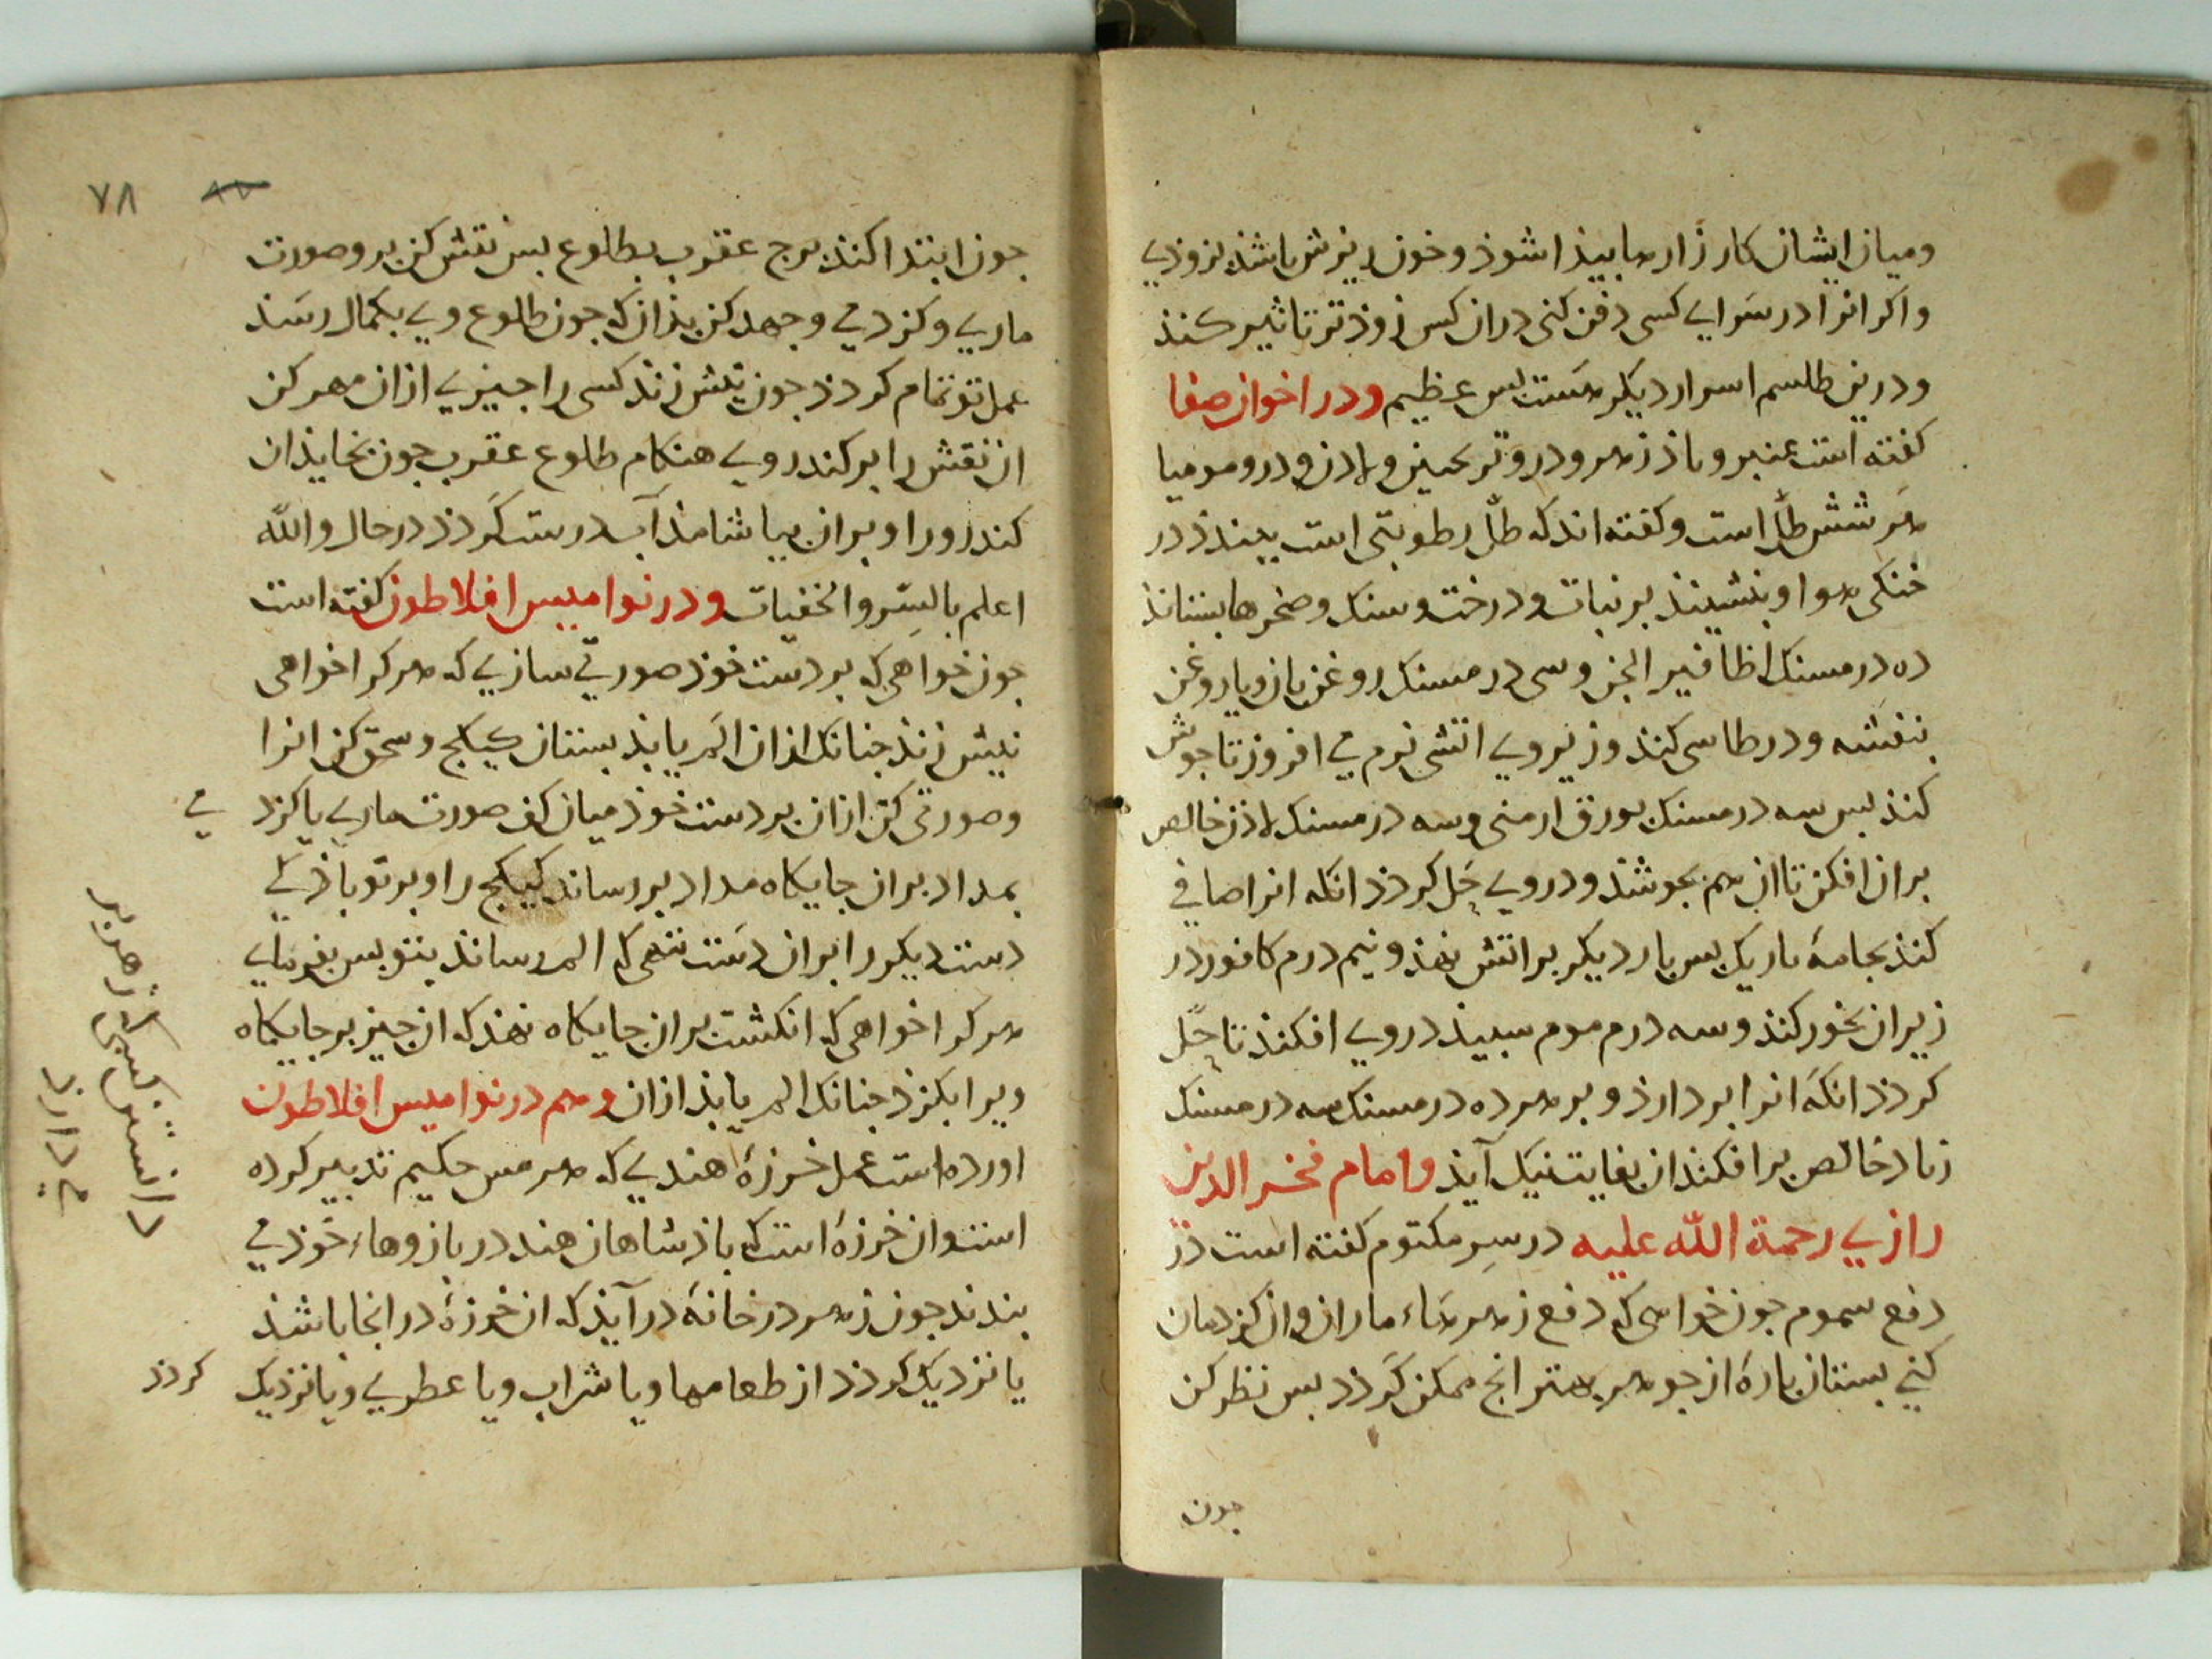 ومیان ایشان کارزارها بیذا شوذ و خون ریزش باشذ بزوذی
واکر انرا در سرای کسی دفن کنی در ان کس زوذتر تاثیر کنذ
ودرین طلسم اسرار دیکر هست بس عظیم ودر اخوان صفا
کفته است عنبر و باذزهر و در و ترنجبین و لاذن و در و مومیا
هر شش طل است وکفته اند که طل رطوبتی است ببندذ در
خنکی هوا و بنشیند بر نباتات و درخت و سنک و صخرها بستاند
ده درمسنک اظافیر الجن و سی درمسنک روغن بان و یا روغن
بنفشه و در طاسی کنذ و زیر وی اتشی نرم می افروز تا جوش
کنذ بس سه درمسنک بورق ارمنی و سه درمسنک لاذن خالص
بران افکن تا ان هم بجوشذ ودر وی حل کردذ انکه انرا صافی
کنذ بجامهٔ باریک بس بار دیکر بر اتش نهذ و نیم درم کافور در
زیر ان بخور کنذ و سه درم موم سبیذ در وی افکنذ تا حل
کردذ انکه انرا بردارذ و بر هر ده درمسنک سه درمسنک
زباد خالص بر افکند ان بغایت نیک آیذ وامام فخر الدین
رازی رحمة الله علیه در سر مکتوم کفته است در
دفع سموم جون خواهی که دفع زهرهاء ماران و ان کزدمان
کنی بستان بارهٔ از جوهر بهتر انج ممکن کردذ بس نظر کن
جون
۷۸
جون ابتدا کند برج عقرب بطلوع بس نقش کن بر و صورت
ماری و کزدمی و جهد کن بذان که جون طلوع وی بکمال رسذ
عمل تو تمام کردذ جون نیش زند کسی را جیزی از ان مهر کن
ان نقش را بر کندر وی هنکام طلوع عقرب جون بخایذ ان
کندرو را و بران بیاشامذ آب درست کردذ در حال والله
اعلم بالسر والخفیات ودر نوامیس افلاطون کفته است
جون خواهی که بر دست خوذ صورتی سازی که هر کرا خواهی
نیش زند جنانک از ان الم یابذ بستان کبیکج و سحق کن انرا
وصورتی کن ازان بر دست خوذ میان کف صورت ماری یا کزد
می
بمداد بران جایکاه مداد بر رساند کبیکج را و بر تو باذ کی
دست دیکر را بران دست ننهی که الم رساند بتو بس بفرمای
هر کرا خواهی که انکشت بران جایکاه نهذ که ان جیز بر جایکاه
ویرا بکزذ جنانک الم یابذ ازان وهم در نوامیس افلاطون
اورده است عمل خرزهٔ هندی که هرمس حکیم تدبیر کرده
است و ان خرزهٔ است که باذشاهان هند در بازوهاء خوذ می
بندند جون زهر در خانهٔ در آیذ که ان خرزهٔ در انجا باشذ
یا نزدیک کردذ از طعامها و یا شراب و یا عطری و یا نزدیک
کردذ
دارد